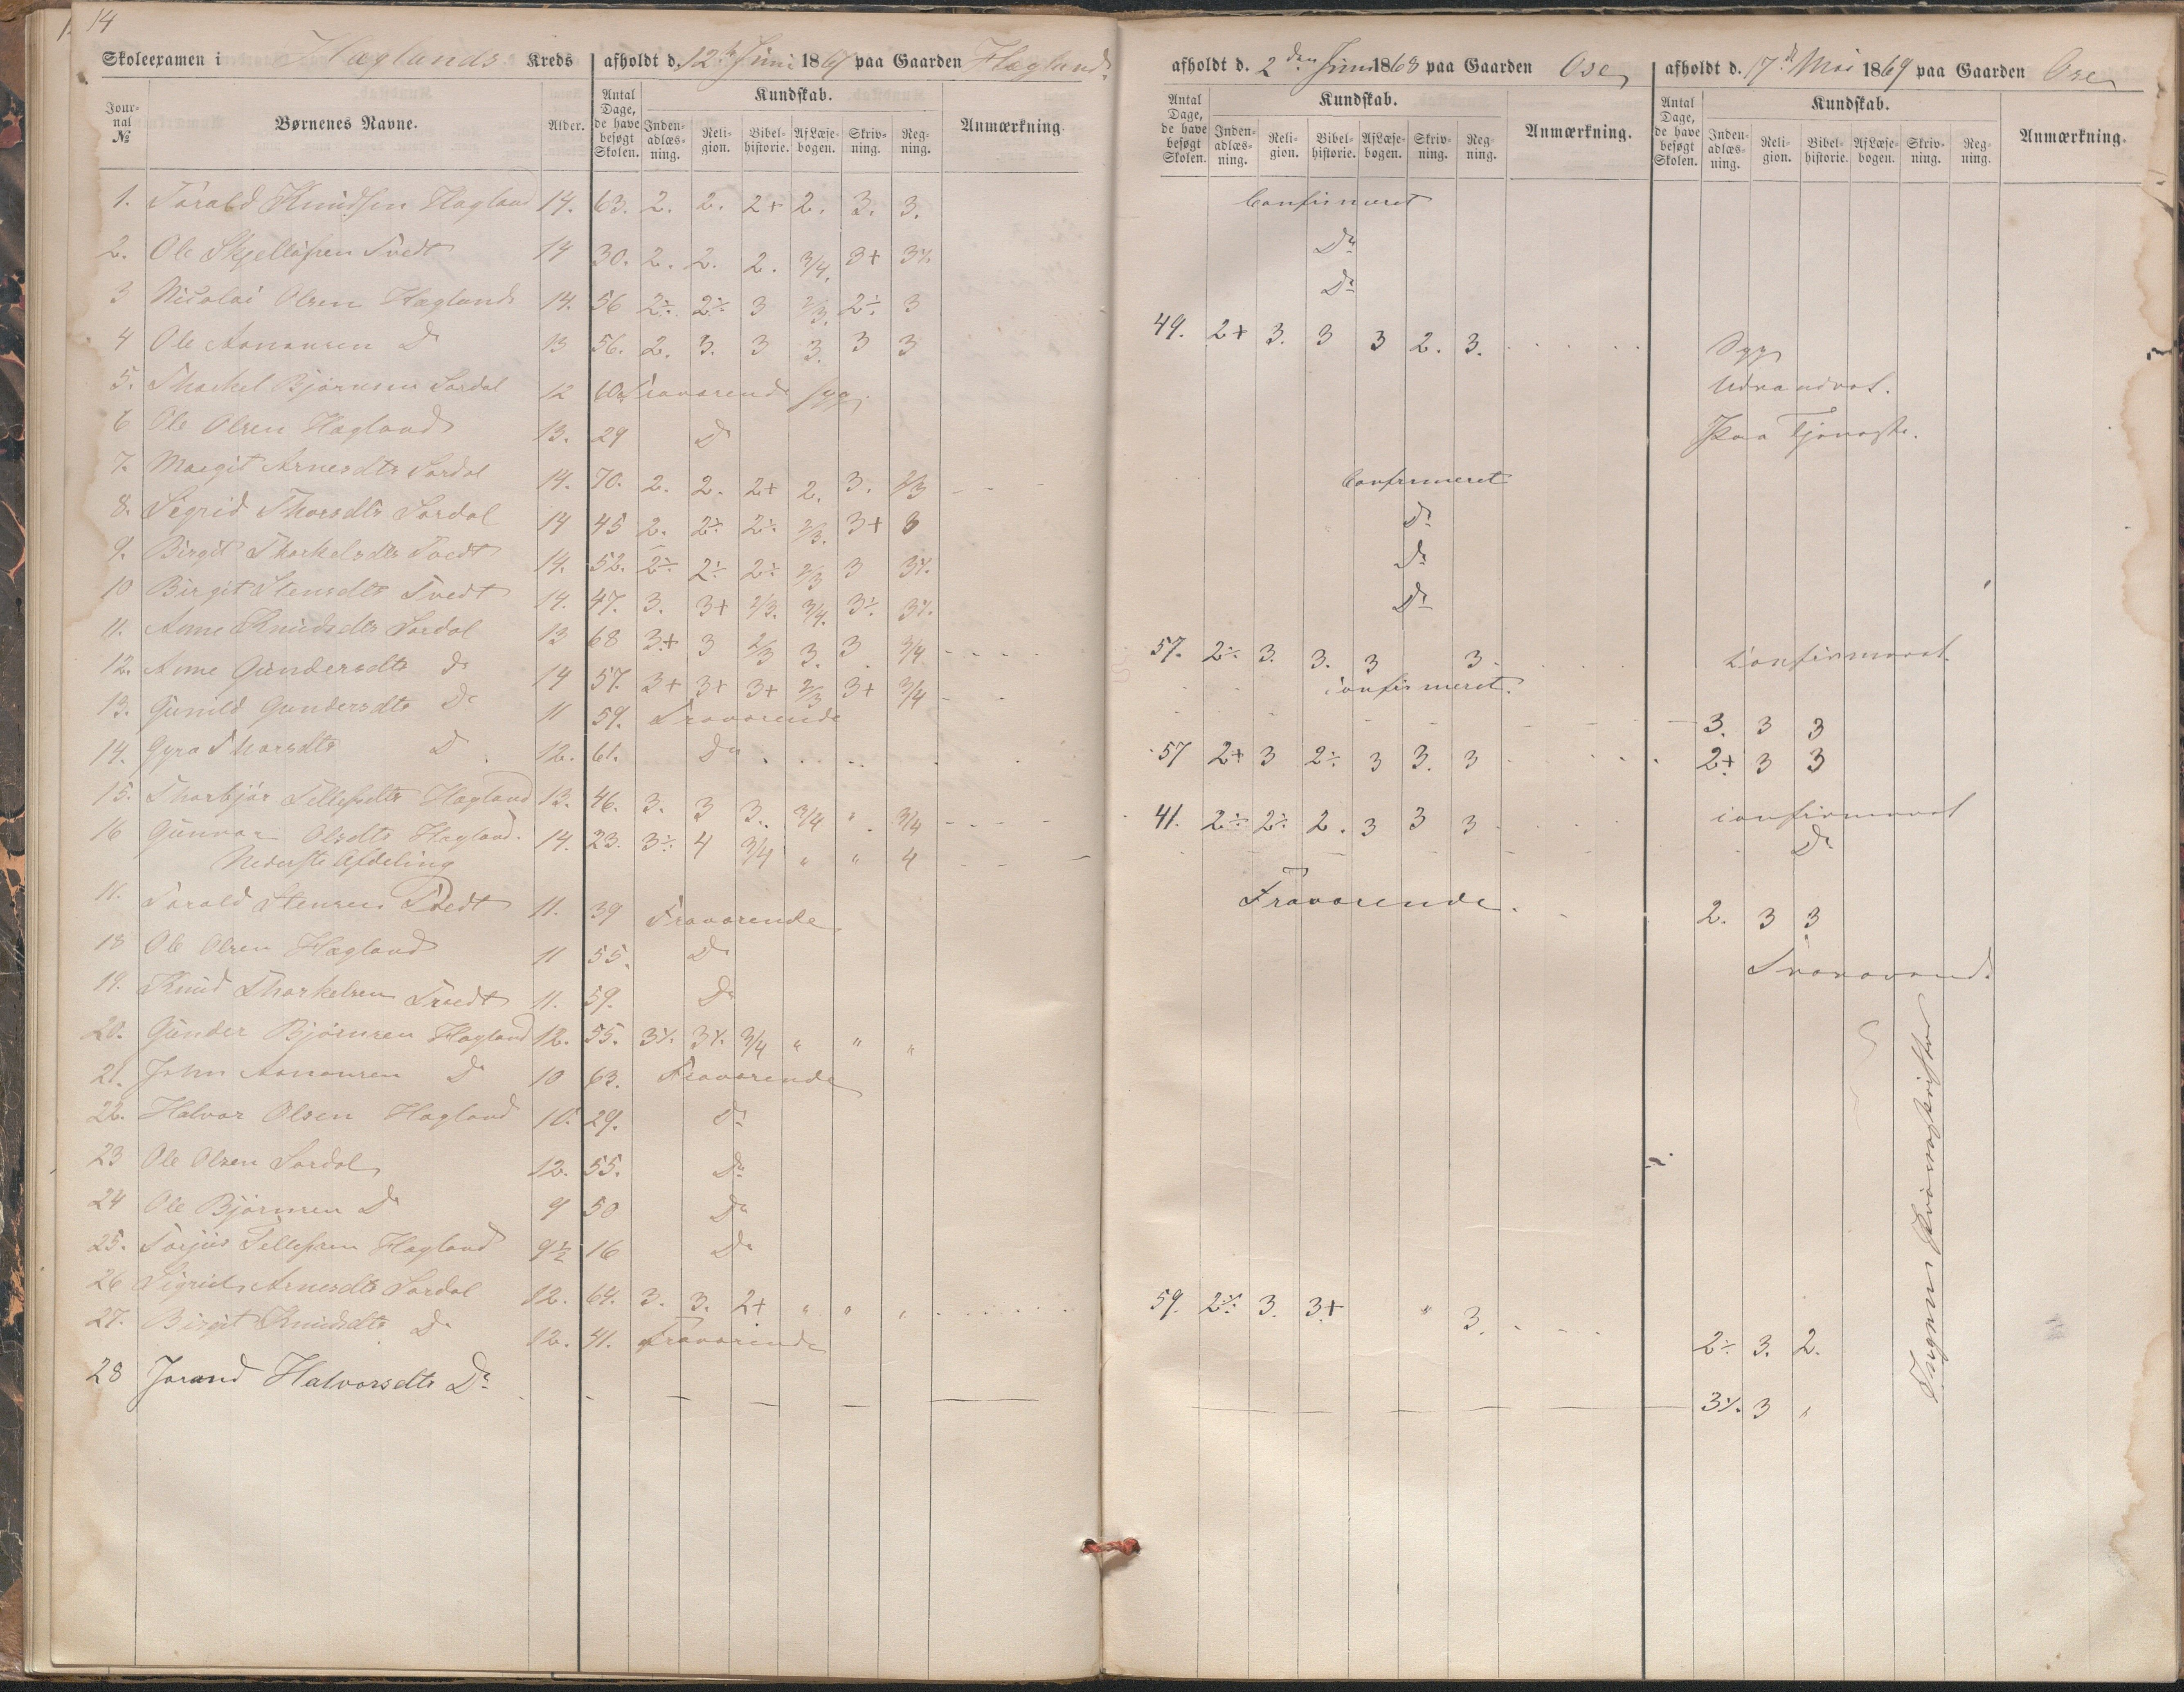 14
Skoleexamen i Haglands Kreds afholdt d. 12te Juni 1867 paa Gaarden Hagland.
Jour-nal № Børnenes Navne. Alder. Antal Dage, de have besøgt Skolen. Kundskab. Inden-adlæs-ning. Reli-gion. Bibel-historie. Af Læse-bogen. Skriv-ning. Reg-ning. Anmærkning.
1. Torald Knudsen Hagland 14. 63. 2. 2. 2+ 2. 3. 3.
2. Ole Tvedt 14 30. 2. 2. 2. 3/4. 3+ 3÷.
3 Nicolai Olsen Hagland 14. 56 2÷. 2÷ 3 2/3. 2÷ 3
4 Ole Aanonsen Do 13 56. 2. 3. 3 3. 3 3
5. Thorkel Bjørnsen Sordal 12 60 Fraværende syg.
6 Ole Olsen Hagland 13. 29 Do
7. Margit Arnesdtr Sordal 14. 70. 2. 2. 2+ 2. 3. 2/3
8. Sigrid Thorsdtr Sordal 14 45 2. 2÷ 2÷. 2/3. 3+ 3
9. Birgit Thorkelsdtr Tvedt 14. 52. 2÷. 2÷ 2÷ 2/3 3 3÷.
10 Birgit Stensdtr Tvedt 14. 47. 3. 3+ 2/3. 3/4. 3÷. 3÷.
11. Anne Knudsdtr Sordal 13 68 3+ 3 2/3 3. 3 3/4
12. Anne Gundersdtr Do 14 57. 3+ 3+ 3+ 2/3 3+ 3/4
13. Gunild Gundersdtr Do 11 59. Fraværende
14. Gyro Thorsdtr Do 12. 61. Do
15. Thorbjør Tellefsdtr Hagland 13. 46. 3. 3 3. 3/4 " 3/4
16 Gunvor Olsdtr Hagland. 14. 23. 3÷ 4 3/4 " " 4
Nederste Afdeling
Torald Stensen Tvedt 11. 39 Fraværende
18 Ole Olsen Hagland 11 55. Do
19. Knud Thorkelsen Tvedt 11. 59. Do
20. Gunder Bjørnsen Hagland 12. 55. 3÷. 3÷. 3/4 " " "
21. John Aanonsen Do 10 63. Fraværende
22. Halvor Olsen Hagland 10. 29. Do
23 Ole Olsen Sordal 12. 55. Do
24 Ole Bjørnsen Do 9 50 Do
25. Torjus Tellefsen Hagland 9½ 16 Do
26 Sigrid Arnesdtr Sordal 12. 64. 3. 3. 2+ " " "
27. Birgit Knudsdtr Do 12. 41. Fraværende
28 Jorand Halvorsdtr Do
afholdt d. 2den Juni 1868 paa Gaarden Ose
Antal Dage, de have besøgt Skolen. Kundskab. Inden-adlæs-ning. Reli-gion. Bibel-historie. Af Læse-bogen. Skriv-ning. Reg-ning. Anmærkning.
Confirmeret
Do
Do
49. 2+ 3. 3 3 2. 3.
Confirmeret
Do
Do
Do
57. 2÷. 3. 3. 3 3.
confirmeret.
57 2+ 3 2÷ 3 3. 3
41. 2÷ 2÷ 2. 3 3 3
Fraværende.
59. 2÷. 3. 3+ " 3.
afholdt d. 17de Mai 1869 paa Gaarden Ose
Antal Dage, de have besøgt Skolen. Kundskab. Inden-adlæs-ning. Reli-gion. Bibel-historie. Af Læse-bogen. Skriv-ning. Reg-ning. Anmærkning.
Syg
Udvandret.
Paa Tjeneste.
Confirmeret.
3. 3 3
2+ 3 3
confirmeret
Do
2. 3 3
Fraværende
2÷ 3. 2.
3÷. 3 "
Ingen